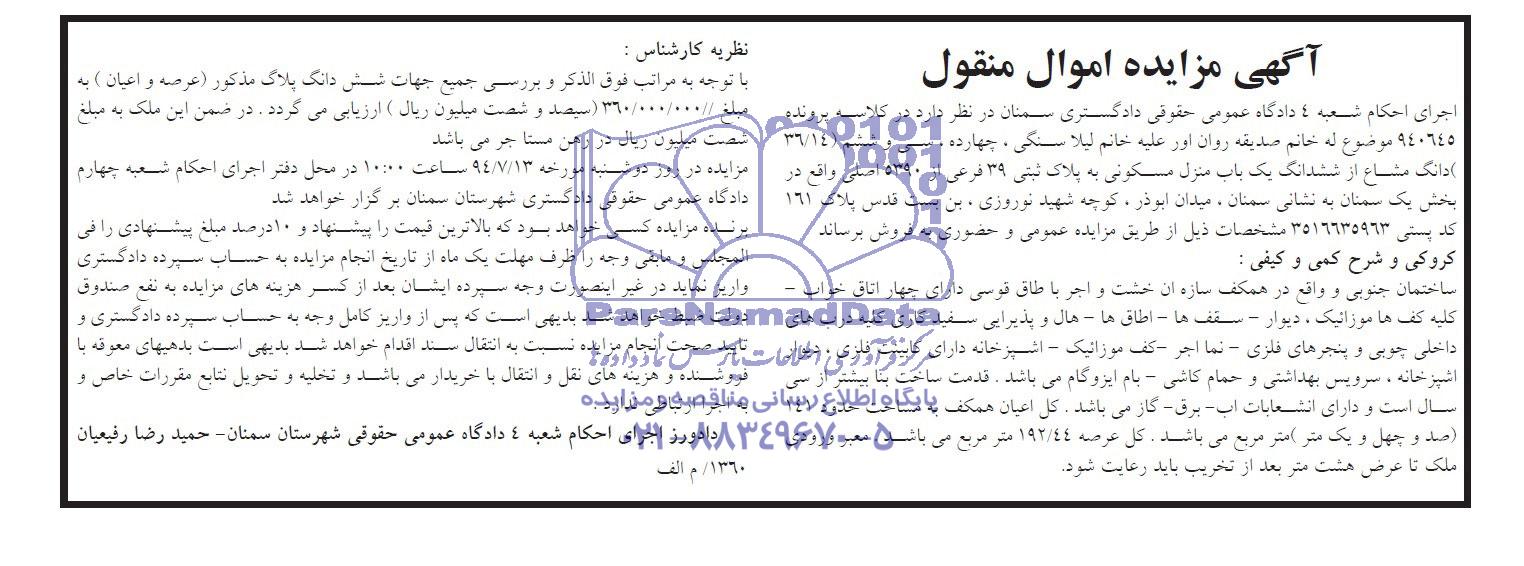 آگهی مزایده اموال منقول
اجرای احکام شعبه ٤ دادگاه عمومی حقوقی دادگستری سمنان در نظر دارد در کلاسه پرونده
٩٤٠٦٤٥ موضوع له خانم صدیقه روان اور علیه خانم لیلا سنگی ، چهارده ، سی و ششم (٣٦/١٤
)دانگ مشاع از ششدانگ یک باب منزل مسکونی به پلاک ثبتی ٣٩ فرعی از ٥٣٩٠ اصلی واقع در
بخش یک سمنان به نشانی سمنان ، میدان ابوذر ، کوچه شهید نوروزی ، بن بست قدس پلاک ١٦١
کد پستی ٣٥١٦٦٣٥٩٦٣ مشخصات ذیل از طریق مزایده عمومی و حضوری به فروش برساند
کروکی و شرح کمی و کیفی :
ساختمان جنوبی و واقع در همکف سازه ان خشت و اجر با طاق قوسی دارای چهار اتاق خواب –
کلیه کف ها موزائیک ، دیوار – سقف ها – اطاق ها – هال و پذیرایی سفید کاری کلیه درب های
داخلی چوبی و پنجرهای فلزی – نما اجر –کف موزائیک – اشپزخانه دارای کابینت فلزی ، دیوار
اشپزخانه ، سرویس بهداشتی و حمام کاشی – بام ایزوگام می باشد . قدمت ساخت بنا بیشتر از سی
سال است و دارای انشعابات اب- برق- گاز می باشد . کل اعیان همکف به مساحت حدود ١٤١
(صد و چهل و یک متر )متر مربع می باشد . کل عرصه ١٩٢/٤٤ متر مربع می باشد . معبر ورودی
ملک تا عرض هشت متر بعد از تخریب باید رعایت شود.
نظریه کارشناس :
با توجه به مراتب فوق الذکر و بررسی جمیع جهات شش دانگ پلاگ مذکور (عرصه و اعیان ) به
مبلغ //٣٦٠/٠٠٠/٠٠٠ (سیصد و شصت میلیون ریال ) ارزیابی می گردد . در ضمن این ملک به مبلغ
شصت میلیون ریال در رهن مستا جر می باشد
مزایده در روز دوشنبه مورخه ٩٤/٧/١٣ ساعت ١٠:٠٠ در محل دفتر اجرای احکام شعبه چهارم
دادگاه عمومی حقوقی دادگستری شهرستان سمنان بر گزار خواهد شد
برنده مزایده کسی خواهد بود که بالاترین قیمت را پیشنهاد و ١٠درصد مبلغ پیشنهادی را فی
المجلس و مابقی وجه را ظرف مهلت یک ماه از تاریخ انجام مزایده به حساب سپرده دادگستری
واریز نماید در غیر اینصورت وجه سپرده ایشان بعد از کسر هزینه های مزایده به نفع صندوق
دولت ضبط خواهد شد بدیهی است که پس از واریز کامل وجه به حساب سپرده دادگستری و
تایید صحت انجام مزایده نسبت به انتقال سند اقدام خواهد شد بدیهی است بدهیهای معوقه با
فروشنده و هزینه های نقل و انتقال با خریدار می باشد و تخلیه و تحویل نتابع مقررات خاص و
به اجرا ارتباطی ندارد .
دادورز اجرای احکام شعبه ٤ دادگاه عمومی حقوقی شهرستان سمنان- حمید رضا رفیعیان
١٣٦٠/ م الف
ParsNamadData
مرکز فرآوری اطلاعات پارس نماد داده ها
پایگاه اطلاع رسانی مناقصه و مزایده
٠٢١-٨٨٣٤٩٦٧٠-٥